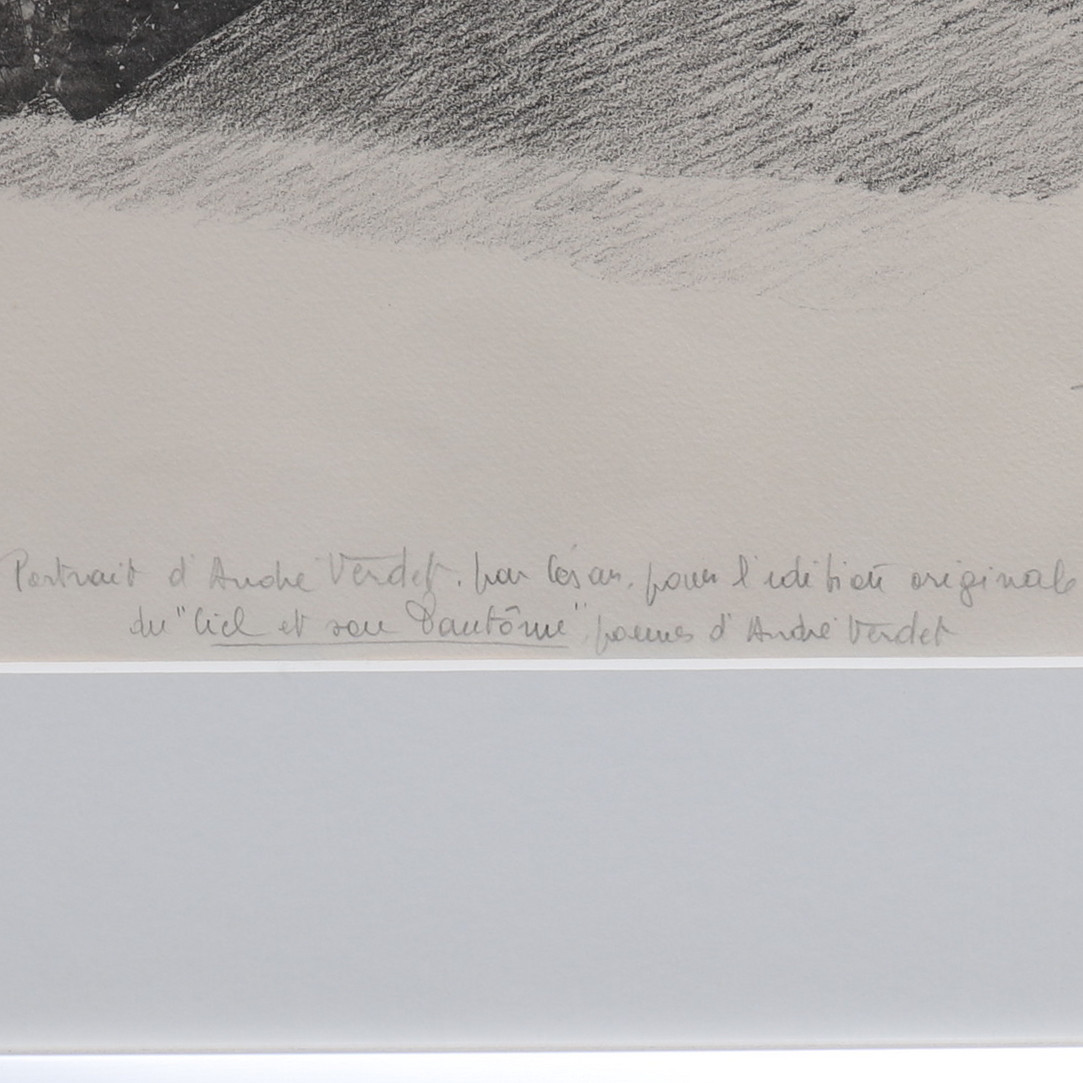 Portrait d'André Verdet. par César. pour l'édition originale
du "Ciel et son Fantôme" poèmes d'André Verdet